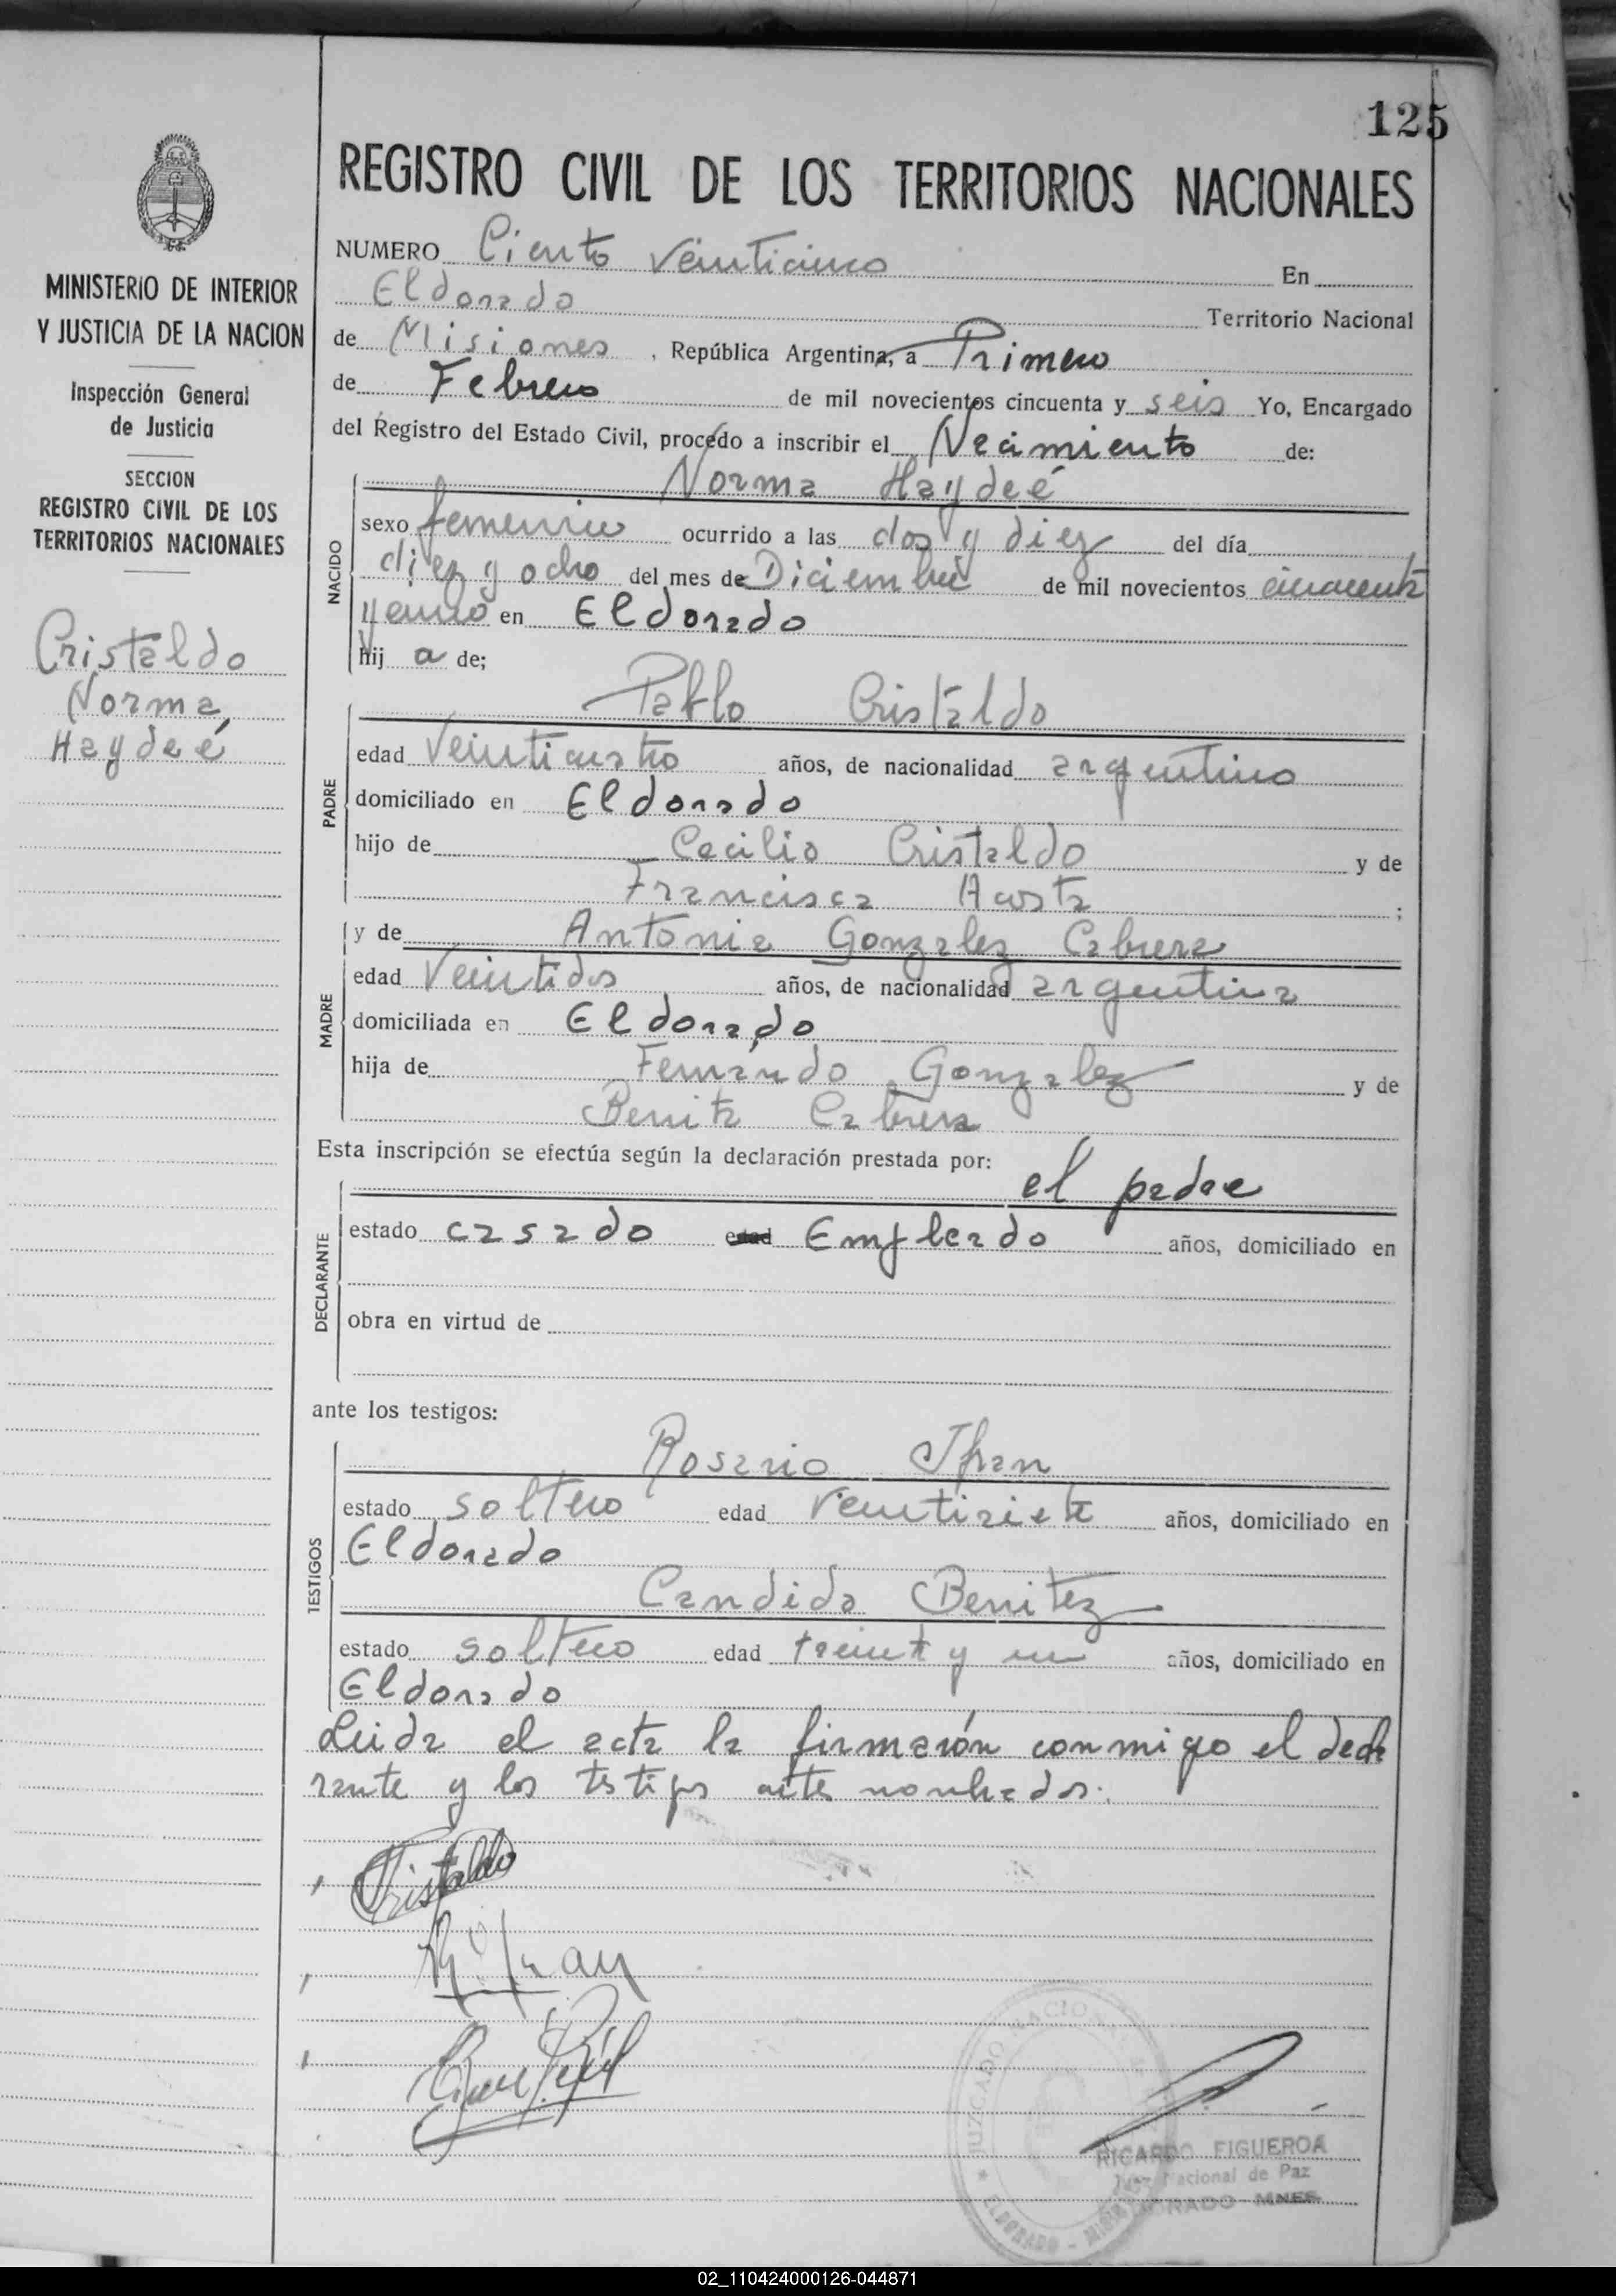 125
REGISTRO CIVIL DE LOS TERRITORIOS NACIONALES
MINISTERIO DE INTERIOR
Y JUSTICIA DE LA NACION
Inspección General
de Justicia
SECCION
REGISTRO CIVIL DE LOS
TERRITORIOS NACIONALES
Cristaldo
Norma
Haydeé
NUMERO Ciento veinticinco En
Eldorado Territorio Nacional
de Misiones, República Argentina, a Primero
de Febrero de mil novecientos cincuenta y seis Yo, Encargado
del Registro del Estado Civil, procedo a inscribir el Nacimiento de:
NACIDO
Norma Haydeé
sexo femenino ocurrido a las dos y diez del día
diez y ocho del mes de Diciembre de mil novecientos cincuenta
y en Eldorado
hij a de;
PADRE
Pablo Cristaldo
edad Veinticuatro años, de nacionalidad argentino
domiciliado en Eldorado
hijo de Cecilio Cristaldo y de
Francisca Acosta ;
MADRE
y de Antonia Gonzalez Cabrera
edad Veintidos años, de nacionalidad argentina
domiciliada en Eldorado
hija de Fernando Gonzalez y de
Benita Cabrera
Esta inscripción se efectúa según la declaración prestada por:
DECLARANTE
el padre
estado casado edad Empleado años, domiciliado en
obra en virtud de
ante los testigos:
TESTIGOS
Rosario
estado soltero edad Veintisiete años, domiciliado en
Eldorado
Candido Benitez
estado soltero edad treinta y un años, domiciliado en
Eldorado
Leida el acta la firmarón conmigo el decla
rante y los testigos ante nombrados.
Cristaldo
JUZGADO NACIONAL
ELDORADO - MISIONES
RICARDO FIGUEROA
Juez Nacional de Paz
ELDORADO - MNES.
02_110424000126-044871